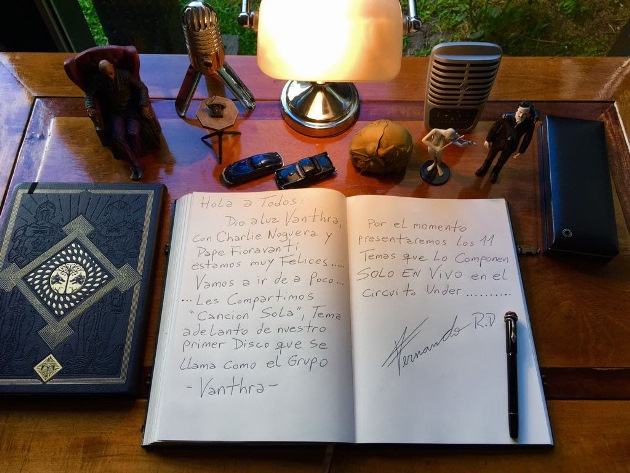 Hola a Todos:
Dio a luz Vanthra,
con Charlie Noguera y
Pape Fioravanti
estamos muy Felices....
Vamos a ir de a poco...
... Les Compartimos
"Cancion Sola", Tema
adelanto de nuestro
primer Disco que se
llama como el Grupo
- Vanthra -
Por el momento
presentaremos los 11
Temas que lo Componen
SOLO EN VIVO en el
circuito Under..........
Fernando R.D